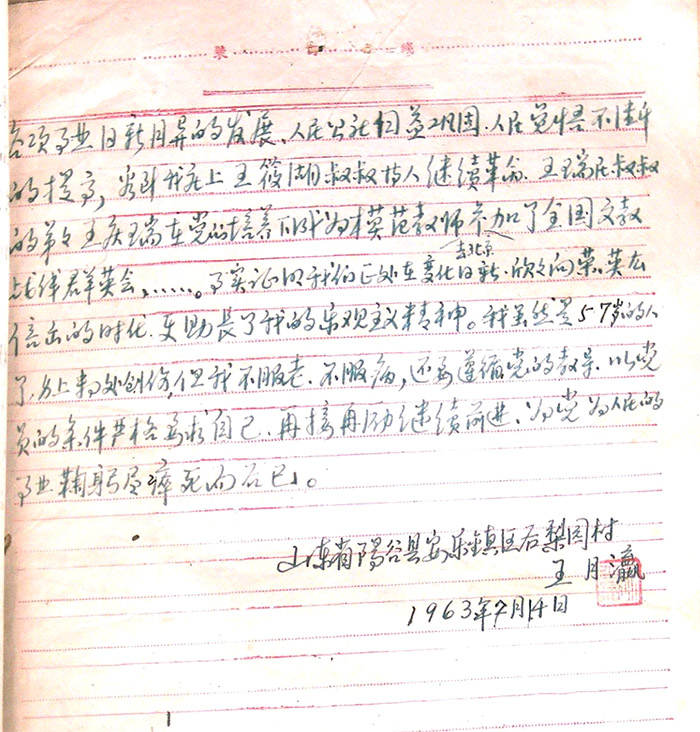 各项事业日新月异的发展、人民公社日益巩固.人民觉悟不断
的提高，我庄上王筱湖叔叔故人继续革命.王瑞民叔叔
的弟弟王庆瑞在党的培养下成为模范教师参加了全国文教
去北京
战线群英会，……。事实证明我们正处在变化日新.欣欣向荣.英杰
倍出的时代.更助长了我的乐观主义精神。我虽然是57岁的人
了.身上有处创伤，但我不服老.不服病，还要遵循党的教导.以党
员的条件严格要求自己.再接再励继续前进.为党为人民的
事业鞠躬尽瘁死而后已。
山东省阳谷县安乐镇区后梨园村
王月瀛
1963年7月14日